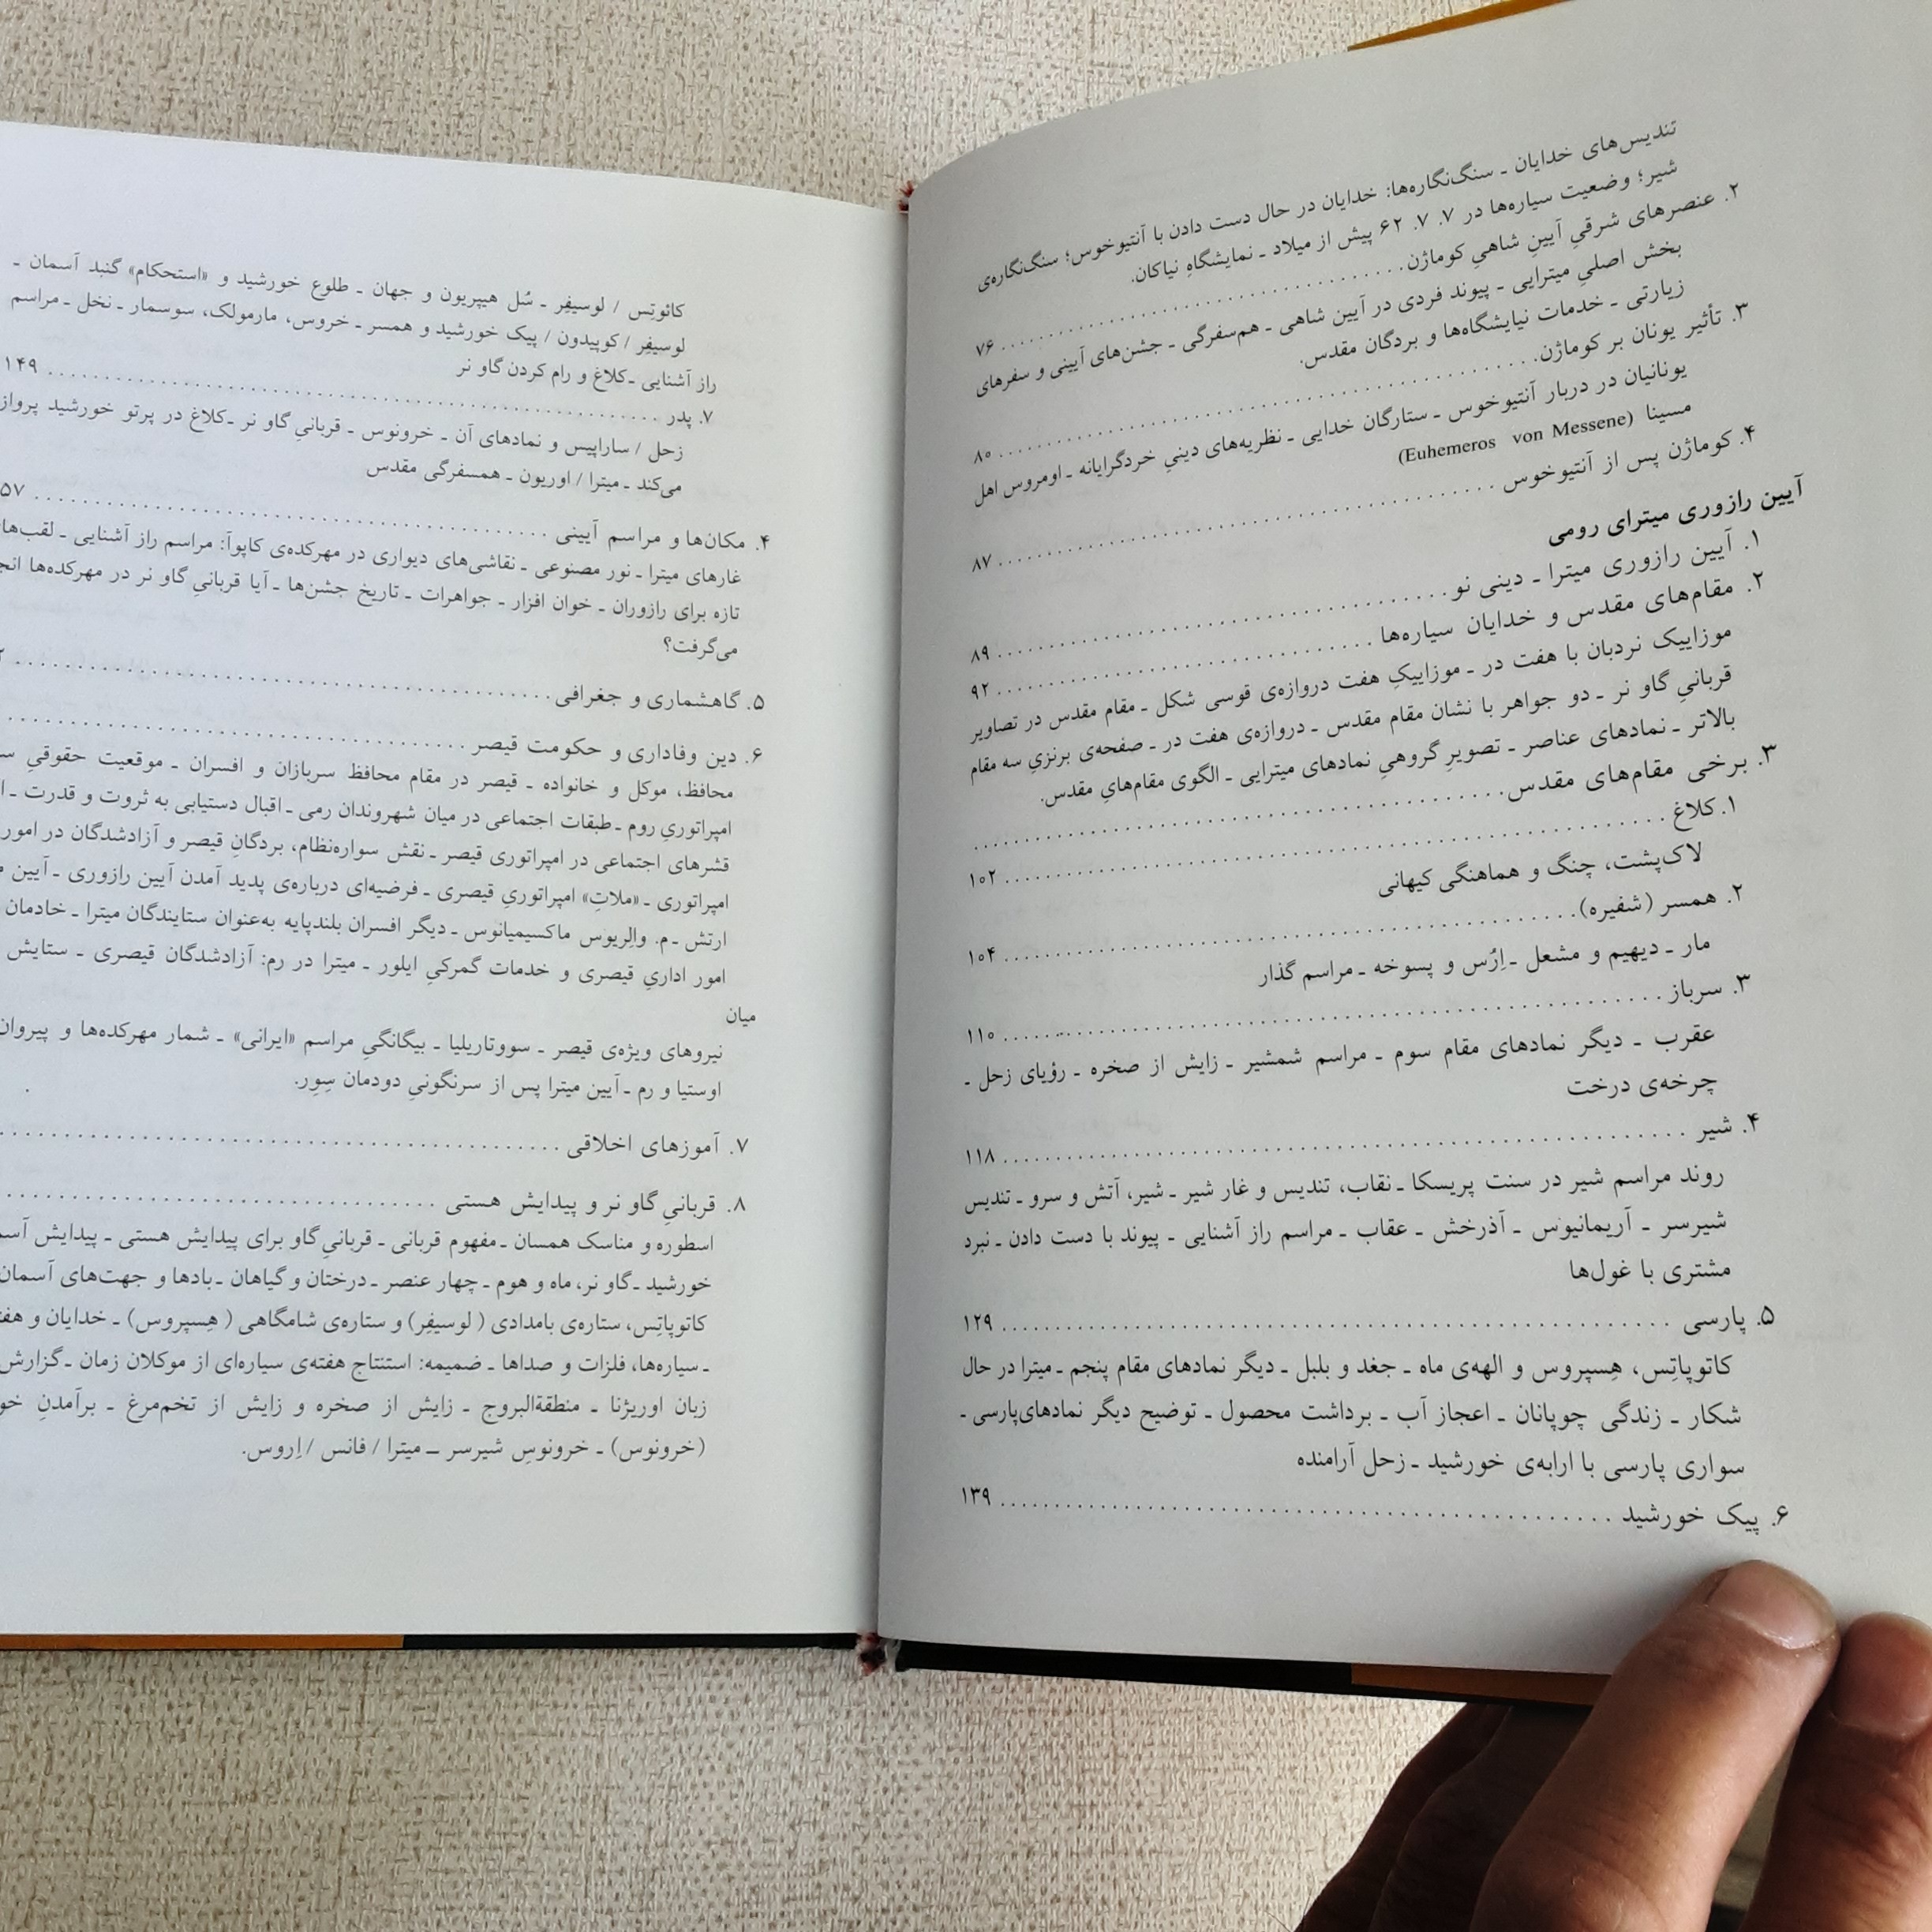 تندیس‌های خدایان ـ سنگ‌نگاره‌ها: خدایان در حال دست دادن با آنتیوخوس؛ سنگ‌نگاره‌ی
شیر؛ وضعیت سیاره‌ها در ۷. ۷. ۶۲ پیش از میلاد ـ نمایشگاهِ نیاکان.
۲. عنصرهای شرقیِ آیینِ شاهیِ کوماژن .......... ۷۶
بخش اصلیِ میترایی ـ پیوند فردی در آیین شاهی ـ هم‌سفرگی ـ جشن‌های آیینی و سفرهای
زیارتی ـ خدمات نیایشگاه‌ها و بردگان مقدس.
۳. تأثیر یونان بر کوماژن .......... ۸۰
یونانیان در دربار آنتیوخوس ـ ستارگان خدایی ـ نظریه‌های دینیِ خردگرایانه ـ اومروس اهل
مسینا (Euhemeros von Messene)
۴. کوماژن پس از آنتیوخوس .......... ۸۷
آیین رازوری میترای رومی
۱. آیین رازوری میترا ـ دینی نو .......... ۸۹
۲. مقام‌های مقدس و خدایان سیاره‌ها .......... ۹۲
موزاییک نردبان با هفت در ـ موزاییکِ هفت دروازه‌ی قوسی شکل ـ مقام مقدس در تصاویر
قربانیِ گاو نر ـ دو جواهر با نشان مقام مقدس ـ دروازه‌ی هفت در ـ صفحه‌ی برنزیِ سه مقام
بالاتر ـ نمادهای عناصر ـ تصویرِ گروهیِ نمادهای میترایی ـ الگوی مقام‌هایِ مقدس.
۳. برخی مقام‌های مقدس ..........
۱. کلاغ .......... ۱۰۲
لاک‌پشت، چنگ و هماهنگی کیهانی
۲. همسر (شفیره) .......... ۱۰۴
مار ـ دیهیم و مشعل ـ اِرُس و پسوخه ـ مراسم گذار
۳. سرباز .......... ۱۱۰
عقرب ـ دیگر نمادهای مقام سوم ـ مراسم شمشیر ـ زایش از صخره ـ رؤیای زحل ـ
چرخه‌ی درخت
۴. شیر .......... ۱۱۸
روند مراسم شیر در سنت پریسکا ـ نقاب، تندیس و غار شیر ـ شیر، آتش و سرو ـ تندیس
شیرسر ـ آریمانیوس ـ آذرخش ـ عقاب ـ مراسم راز آشنایی ـ پیوند با دست دادن ـ نبرد
مشتری با غول‌ها
۵. پارسی .......... ۱۲۹
کاتوپاتِس، هِسپروس و الهه‌ی ماه ـ جغد و بلبل ـ دیگر نمادهای مقام پنجم ـ میترا در حال
شکار ـ زندگی چوپانان ـ اعجاز آب ـ برداشت محصول ـ توضیح دیگر نمادهای‌پارسی ـ
سواری پارسی با ارابه‌ی خورشید ـ زحل آرامنده
۶. پیک خورشید .......... ۱۳۹
کائوتِس / لوسیفِر ـ سُل هیپریون و جهان ـ طلوع خورشید و «استحکام» گنبد آسمان ـ
لوسیفِر / کوپیدون / پیک خورشید و همسر ـ خروس، مارمولک، سوسمار ـ نخل ـ مراسم
راز آشنایی ـ کلاغ و رام کردن گاو نر
۷. پدر .......... ۱۴۹
زحل / ساراپیس و نمادهای آن ـ خرونوس ـ قربانیِ گاو نر ـ کلاغ در پرتو خورشید پرواز
می‌کند ـ میترا / اوریون ـ همسفرگی مقدس
۴. مکان‌ها و مراسم آیینی .......... ۵۷
غارهای میترا ـ نور مصنوعی ـ نقاشی‌های دیواری در مهرکده‌ی کاپوآ: مراسم راز آشنایی ـ لقب‌ها
تازه برای رازوران ـ خوان افزار ـ جواهرات ـ تاریخ جشن‌ها ـ آیا قربانیِ گاو نر در مهرکده‌ها
می‌گرفت؟
۵. گاهشماری و جغرافی ..........
۶. دین وفاداری و حکومت قیصر ..........
محافظ، موکل و خانواده ـ قیصر در مقام محافظ سربازان و افسران ـ موقعیت حقوقیِ
امپراتوریِ روم ـ طبقات اجتماعی در میان شهروندان رمی ـ اقبال دستیابی به ثروت و قدرت ـ
قشرهای اجتماعی در امپراتوری قیصر ـ نقش سواره‌نظام، بردگانِ قیصر و آزادشدگان در امور
امپراتوری ـ «ملاتِ» امپراتوریِ قیصری ـ فرضیه‌ای درباره‌ی پدید آمدن آیین رازوری ـ آیین
ارتش ـ م. والِریوس ماکسیمیانوس ـ دیگر افسران بلندپایه به‌عنوان ستایندگان میترا ـ خادمان
امور اداریِ قیصری و خدمات گمرکیِ ایلور ـ میترا در رم: آزادشدگان قیصری ـ ستایش
میان
نیروهای ویژه‌ی قیصر ـ سووتاریلیا ـ بیگانگیِ مراسم «ایرانی» ـ شمار مهرکده‌ها و پیروان
اوستیا و رم ـ آیین میترا پس از سرنگونیِ دودمان سِوِر.
۷. آموزهای اخلاقی ..........
۸. قربانیِ گاو نر و پیدایش هستی ..........
اسطوره و مناسک همسان ـ مفهوم قربانی ـ قربانیِ گاو برای پیدایش هستی ـ پیدایش
خورشید ـ گاو نر، ماه و هوم ـ چهار عنصر ـ درختان و گیاهان ـ بادها و جهت‌های آسمان
کاتوپاتِس، ستاره‌ی بامدادی (لوسیفِر) و ستاره‌ی شامگاهی (هِسپروس) ـ خدایان و
ـ سیاره‌ها، فلزات و صداها ـ ضمیمه: استنتاج هفته‌ی سیاره‌ای از موکلان زمان ـ گزارش
زبان اوریژنا ـ منطقةالبروج ـ زایش از صخره و زایش از تخم‌مرغ ـ برآمدنِ
(خرونوس) ـ خرونوسِ شیرسر ــ میترا / فانس / اِروس.